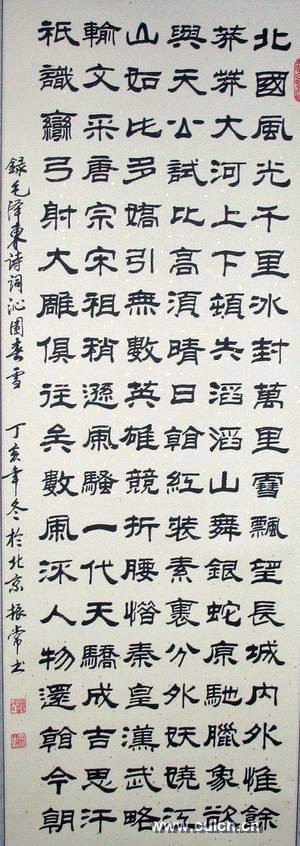 北國風光千里冰封萬里雪飄望長城内外惟餘
莽莽大河上下頓失滔滔山舞銀蛇原馳臘象欲
與天公試比高須晴日看紅裝素裹分外妖嬈江
山如此多嬌引無數英雄競折腰惜秦皇漢武略
輸文采唐宗宋祖稍遜風騷一代天驕成吉思汗
祇識彎弓射大雕俱往矣數風流人物還看今朝
録毛泽東诗词沁園春雪 丁亥年冬於北京振常书